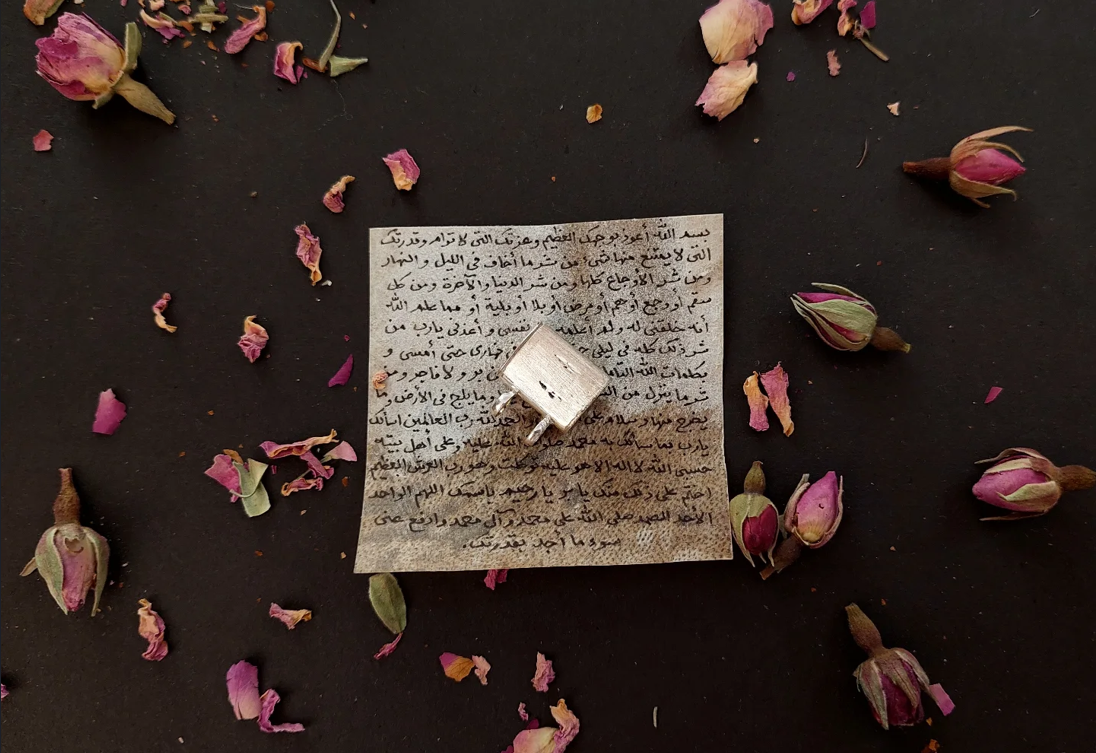 بسم الله أعوذ بوجهك العظيم وعزتك التي لا ترام وقدرتك
التي لا يمتنع منها شيء من شر ما أخاف في الليل والنهار
ومن شر الأوجاع كلها ومن شر الدنيا والآخرة ومن كل
سقم أو وجع أو هم أو مرض أو بلاء أو بلية أو مما علم الله
أنه خلقني له ولم أعلمه نفسي وأعذني يا رب من
شر ذلك كله في ليلي حتى أمسي و
بكلمات الله التامات بر ولا فاجر ومن
شر ما ينزل من وما يلج في الأرض وما
يخرج منها وسلام على الحمد لله رب العالمين أسألك
يا رب بما سألك به محمد صلى الله عليه وعلى أهل بيته
حسبي الله لا إله إلا هو عليه توكلت وهو رب العرش العظيم
اختم على ذلك منك يا بر يا رحيم باسمك اللهم الواحد
الأحد الصمد صلى الله على محمد وآل محمد وادفع عني
سوء ما أجد بقدرتك.